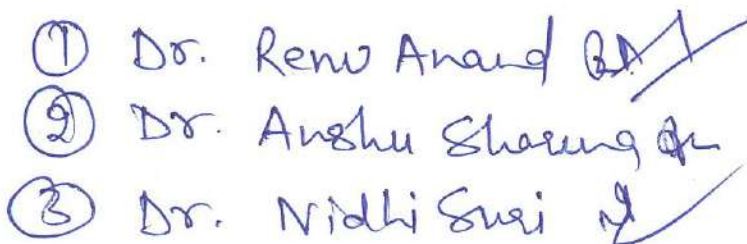 ① Dr. Renu Anand
② Dr. Anshu Sharma
③ Dr. Nidhi Suri